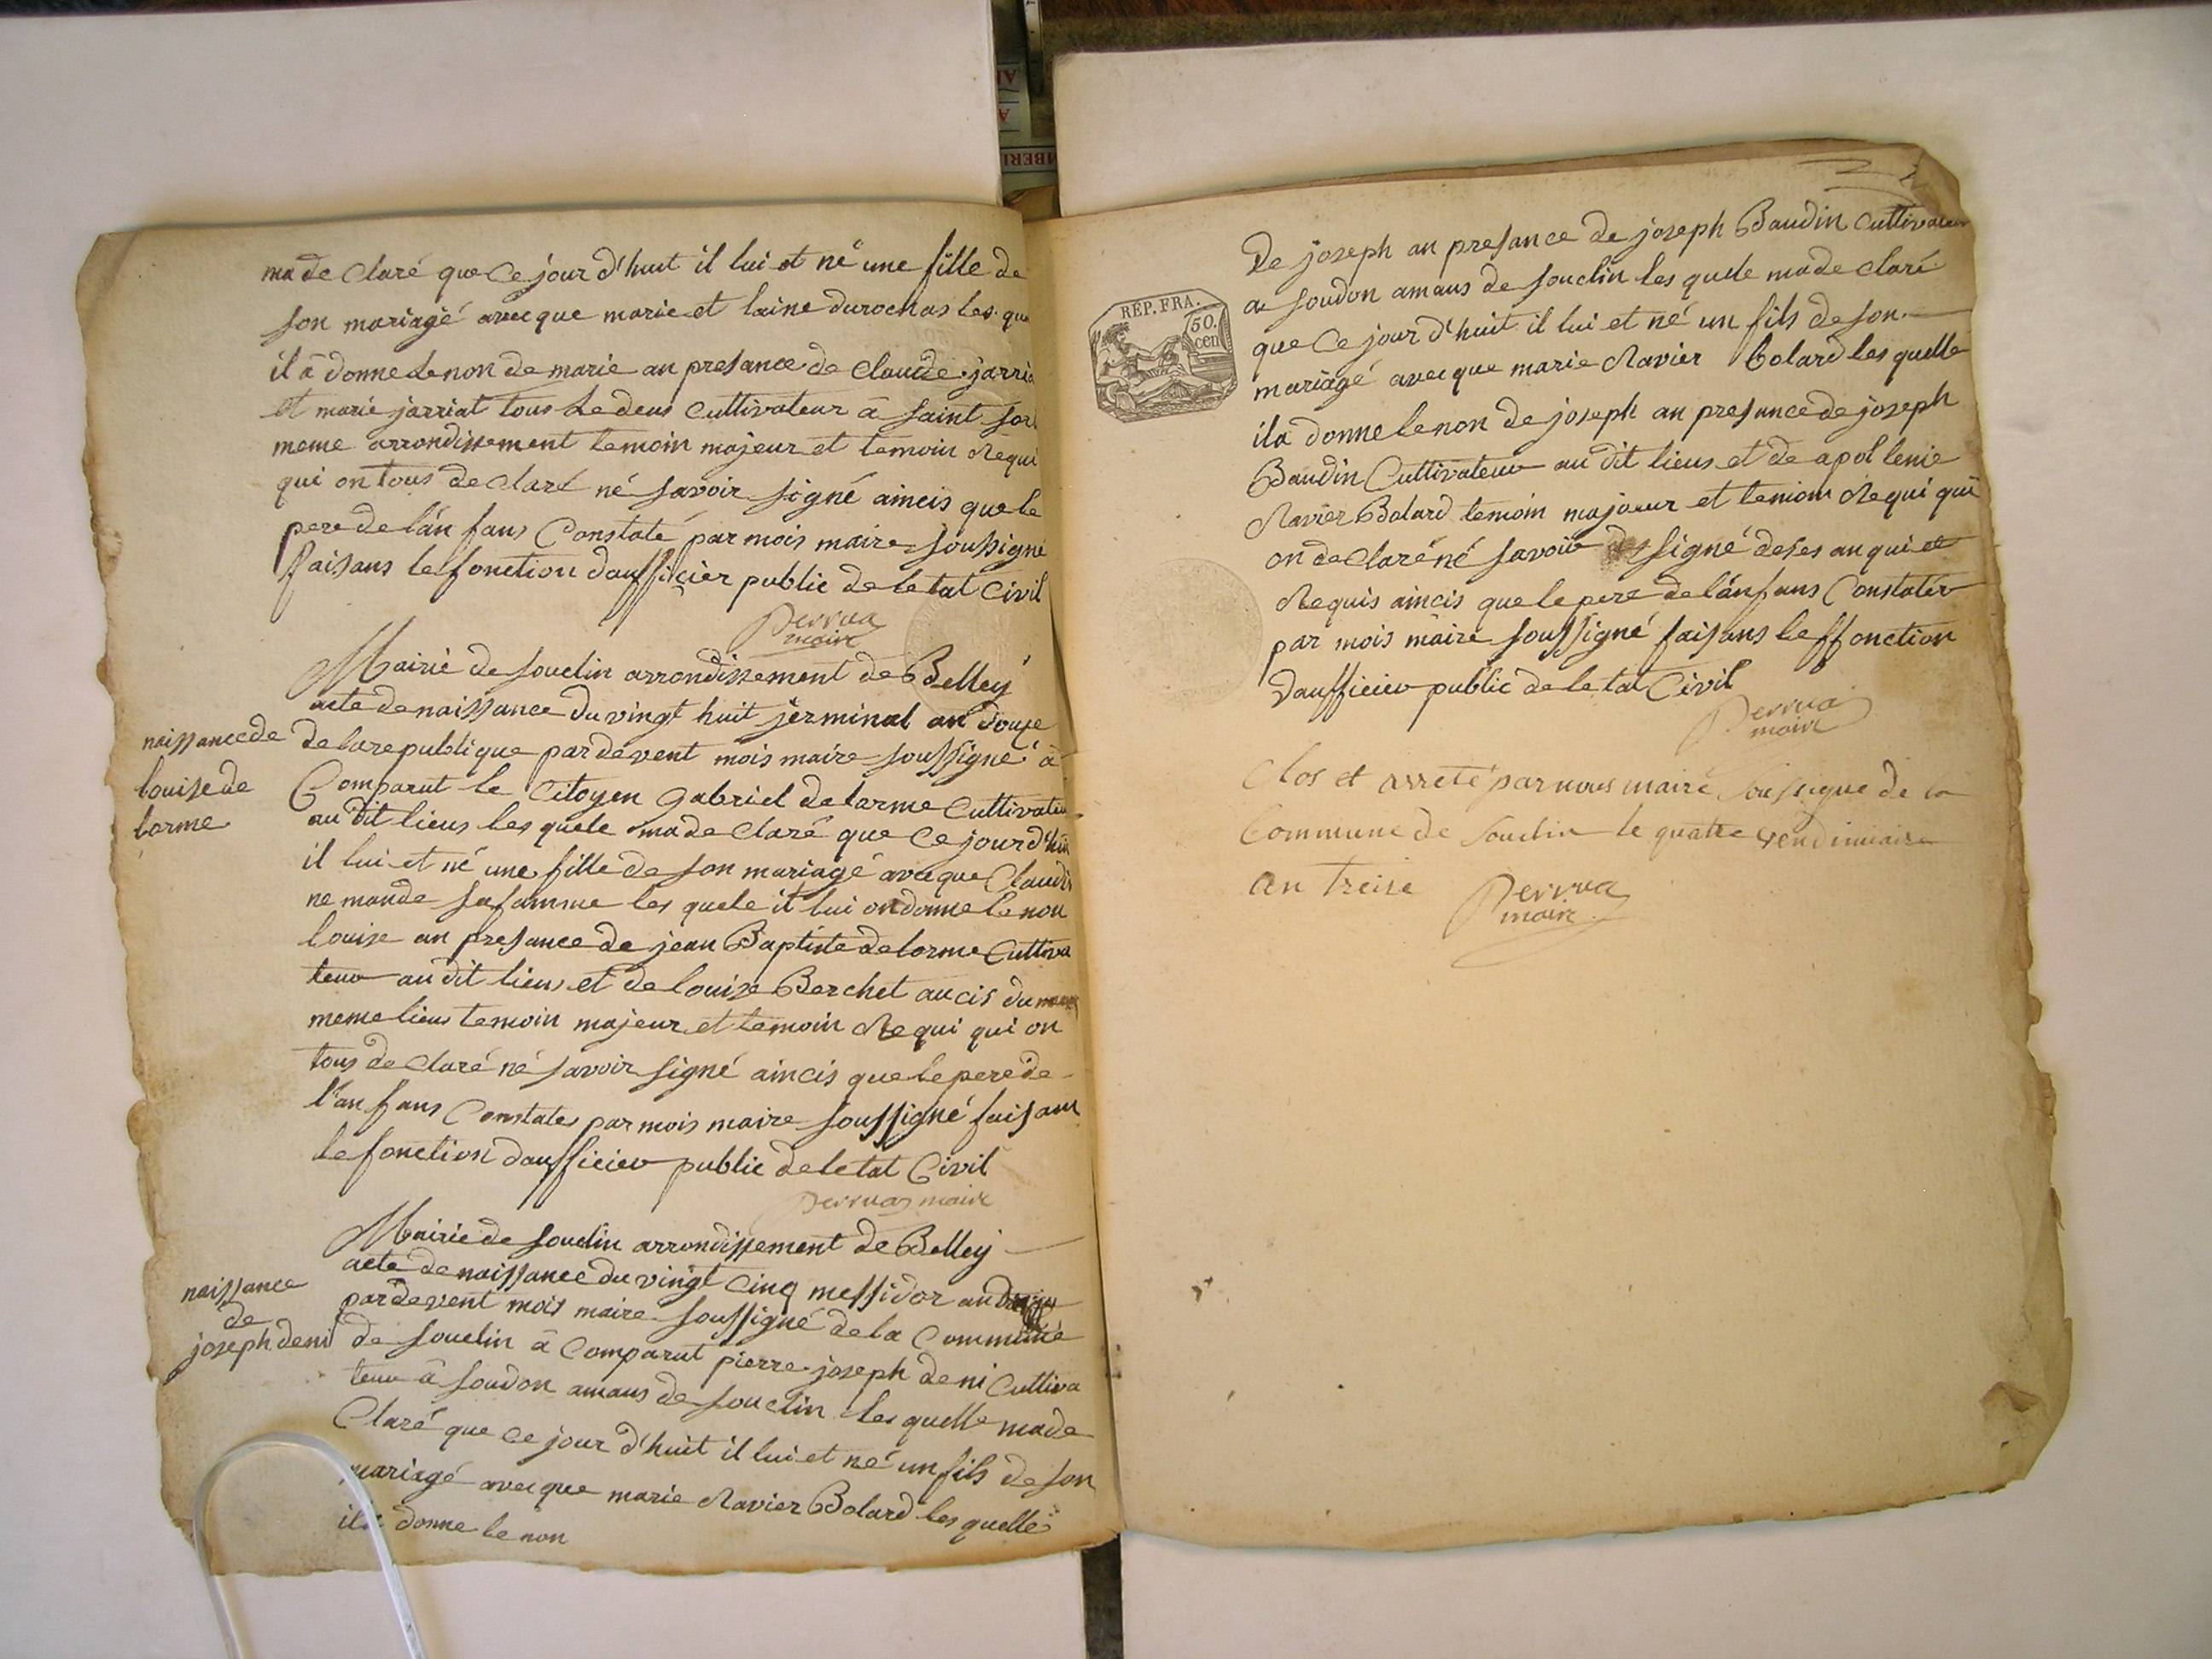 ma de Claré que Ce jour d'huit il lui et né une fille de
son mariagé avecque marie et laine durochas les que
il â donne le non de marie an presance de Claude jarria
et marie jarriat tous le deus Cultivateur â saint sor
meme arrondissement temoin majeur et temoin Requi
qui on tous de Claré né savoir signé aincis que le
pere de l'án fans Constaté par mois maire soussigné
faisans le fonction dauffiçier public de le tat Civil
Perrua
maire
Mairie de souclin arrondissement de Belley
acte de naissance du vingt huit jerminal an douze
naissance de
louise de
lorme
de la republique par devent mois maire soussigné â
Comparut le Citoyen gabriel delarme Cultivateu
au dit lieus les quele ma de Claré que Ce jour d'hui
il lui et né une fille de son mariagé avecque Claudi
ne mande sa famme les quele il lui on donne le non
louise an presance de jean Baptiste delorme Cultiva
teur au dit lieus et de louise Berchet aucis du
meme lieus temoin majeur et temoin Requi qui on
tous de Claré né savoir signé aincis que le pere de
l'án fans Constates par mois maire soussigné faisans
le fonction dauffiçieu public de le tat Civil
perrua maire
Mairie de souclin arrondissement de Belley
acte de naissance du vingt Cinq messidor an
naissance
de
joseph deni
par devent mois maire soussigné de la Commune
de souclin â Comparut pierre joseph deni Cultiva
teur â soudon amaus de souclin les quelle ma de
Claré que Ce jour d'huit il lui et né un fils de son
mariagé avecque marie Ravier Bolard les quelle
il a donne le non
De joseph an presance de joseph Baudin Cultivateur
a soudon amaus de souclin les quele ma de Claré
que Ce jour d'huit il lui et né un fils de son
mariagé avecque marie Ravier bolard les quelle
il a donne le non de joseph an presance de joseph
Baudin Cultivateur au dit lieus et de apol lenie
Ravier Bolard temoin majeur et temoin Requi qui
on de Claré né savoir signé de ses an qui et
Requis aincis que le pere de l'án fans Constater
par mois maire soussigné faisans le ffonction
dauffiçieu public de le tat Civil
Perrua
maire
Clos et arreté par nous maire soussigne de la
Commune de Souclin le quatre vendimiaire
an treise
Perrua
maire
RÉP. FRA.
50.
cen